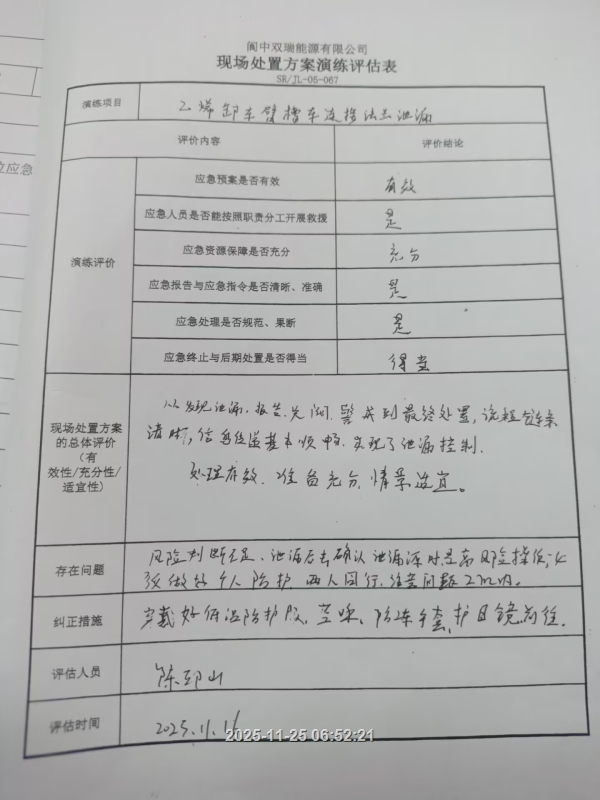 阆中双瑞能源有限公司
现场处置方案演练评估表
SR/JL-05-067
演练项目 乙烯卸车臂槽车连接法兰泄漏
评价内容 评价结论
演练评价
应急预案是否有效 有效
应急人员是否能按照职责分工开展救援 是
应急资源保障是否充分 充分
应急报告与应急指令是否清晰、准确 是
应急处理是否规范、果断 是
应急终止与后期处置是否得当 得当
现场处置方案
的总体评价
(有
效性/充分性/
适宜性)
从发现泄漏、报告、 到最终处置,
清晰,信息 基本顺畅,实现了泄漏控制。
处理有效、准备充分、情景适宜。
存在问题
风险判断不足、泄漏后去确认泄漏源时是高风险操作,必
须做好个人防护,两人同行,
纠正措施 穿戴好低温防护服、 防冻手套、护目镜前往。
评估人员 陈
评估时间 2025.11.16
2025-11-25 06:52:21
位应急